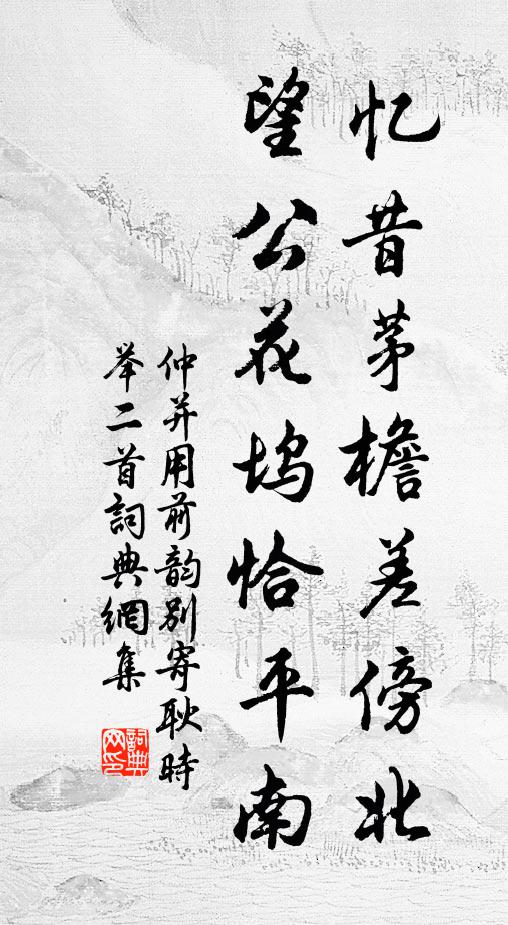 忆昔茅檐差傍北
望公花坞恰平南
仲并用前韵别寄耿时
举二首詞典網集
詞典
网印